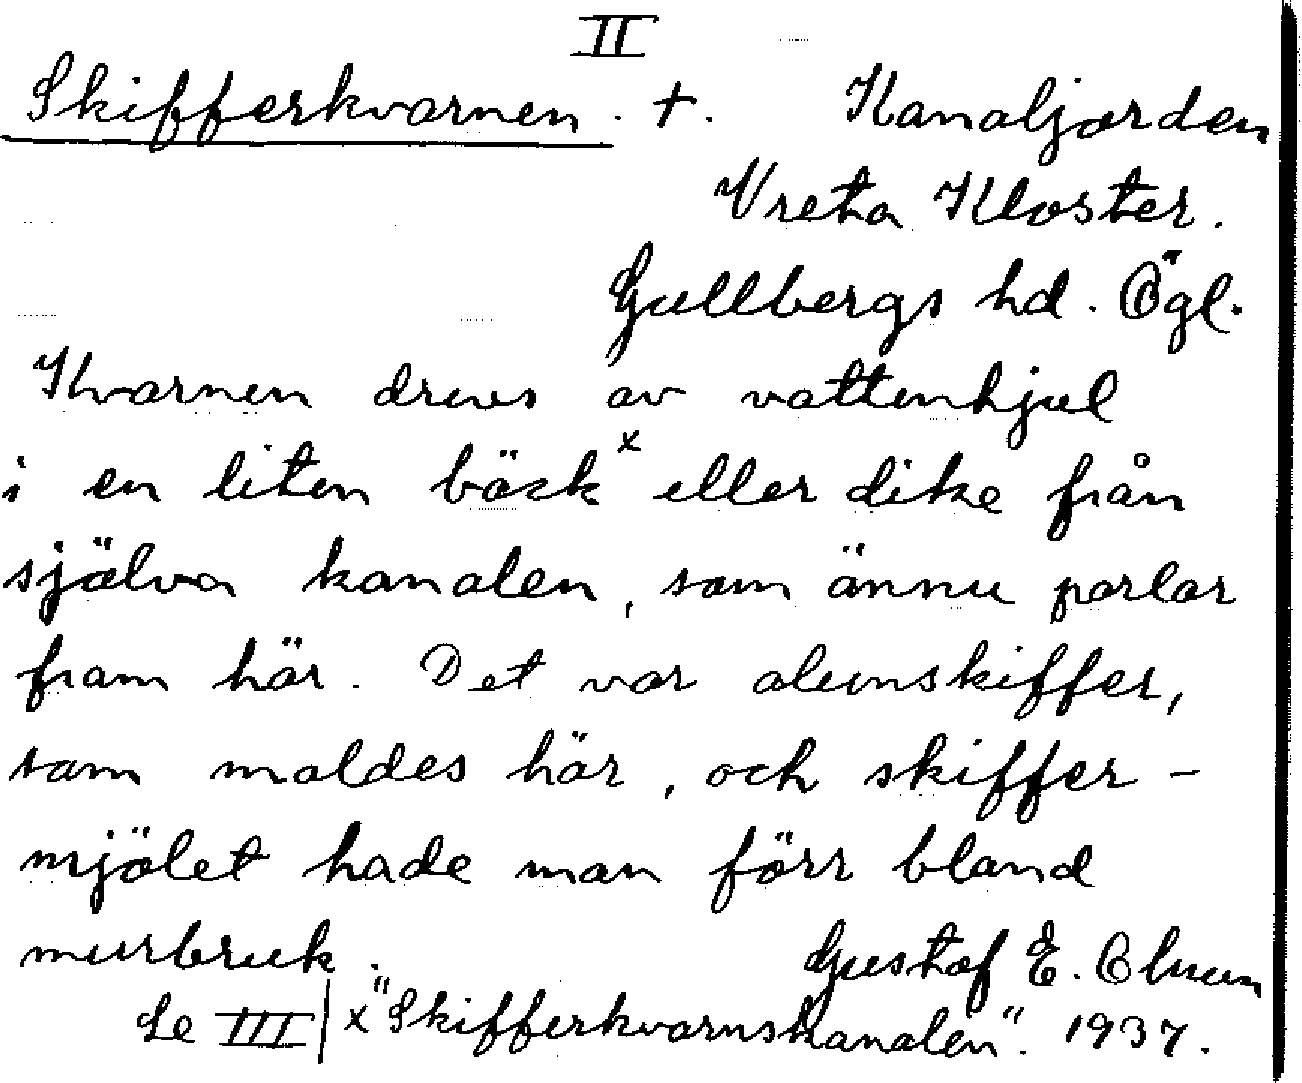 II
Skifferkvarnen. +. Kanaljorden
Vreta Kloster.
Gullbergs hd. Ögl.
Kvarnen drevs av vattenhjul
i en liten bäck x eller dike från
själva kanalen, som ännu porlar
fram här. Det var alunskiffer,
som maldes här, och skiffer-
mjölet hade man förr bland
murbruk.
Gustaf E.
Se III | x "Skifferkvarnskanalen". 1937.